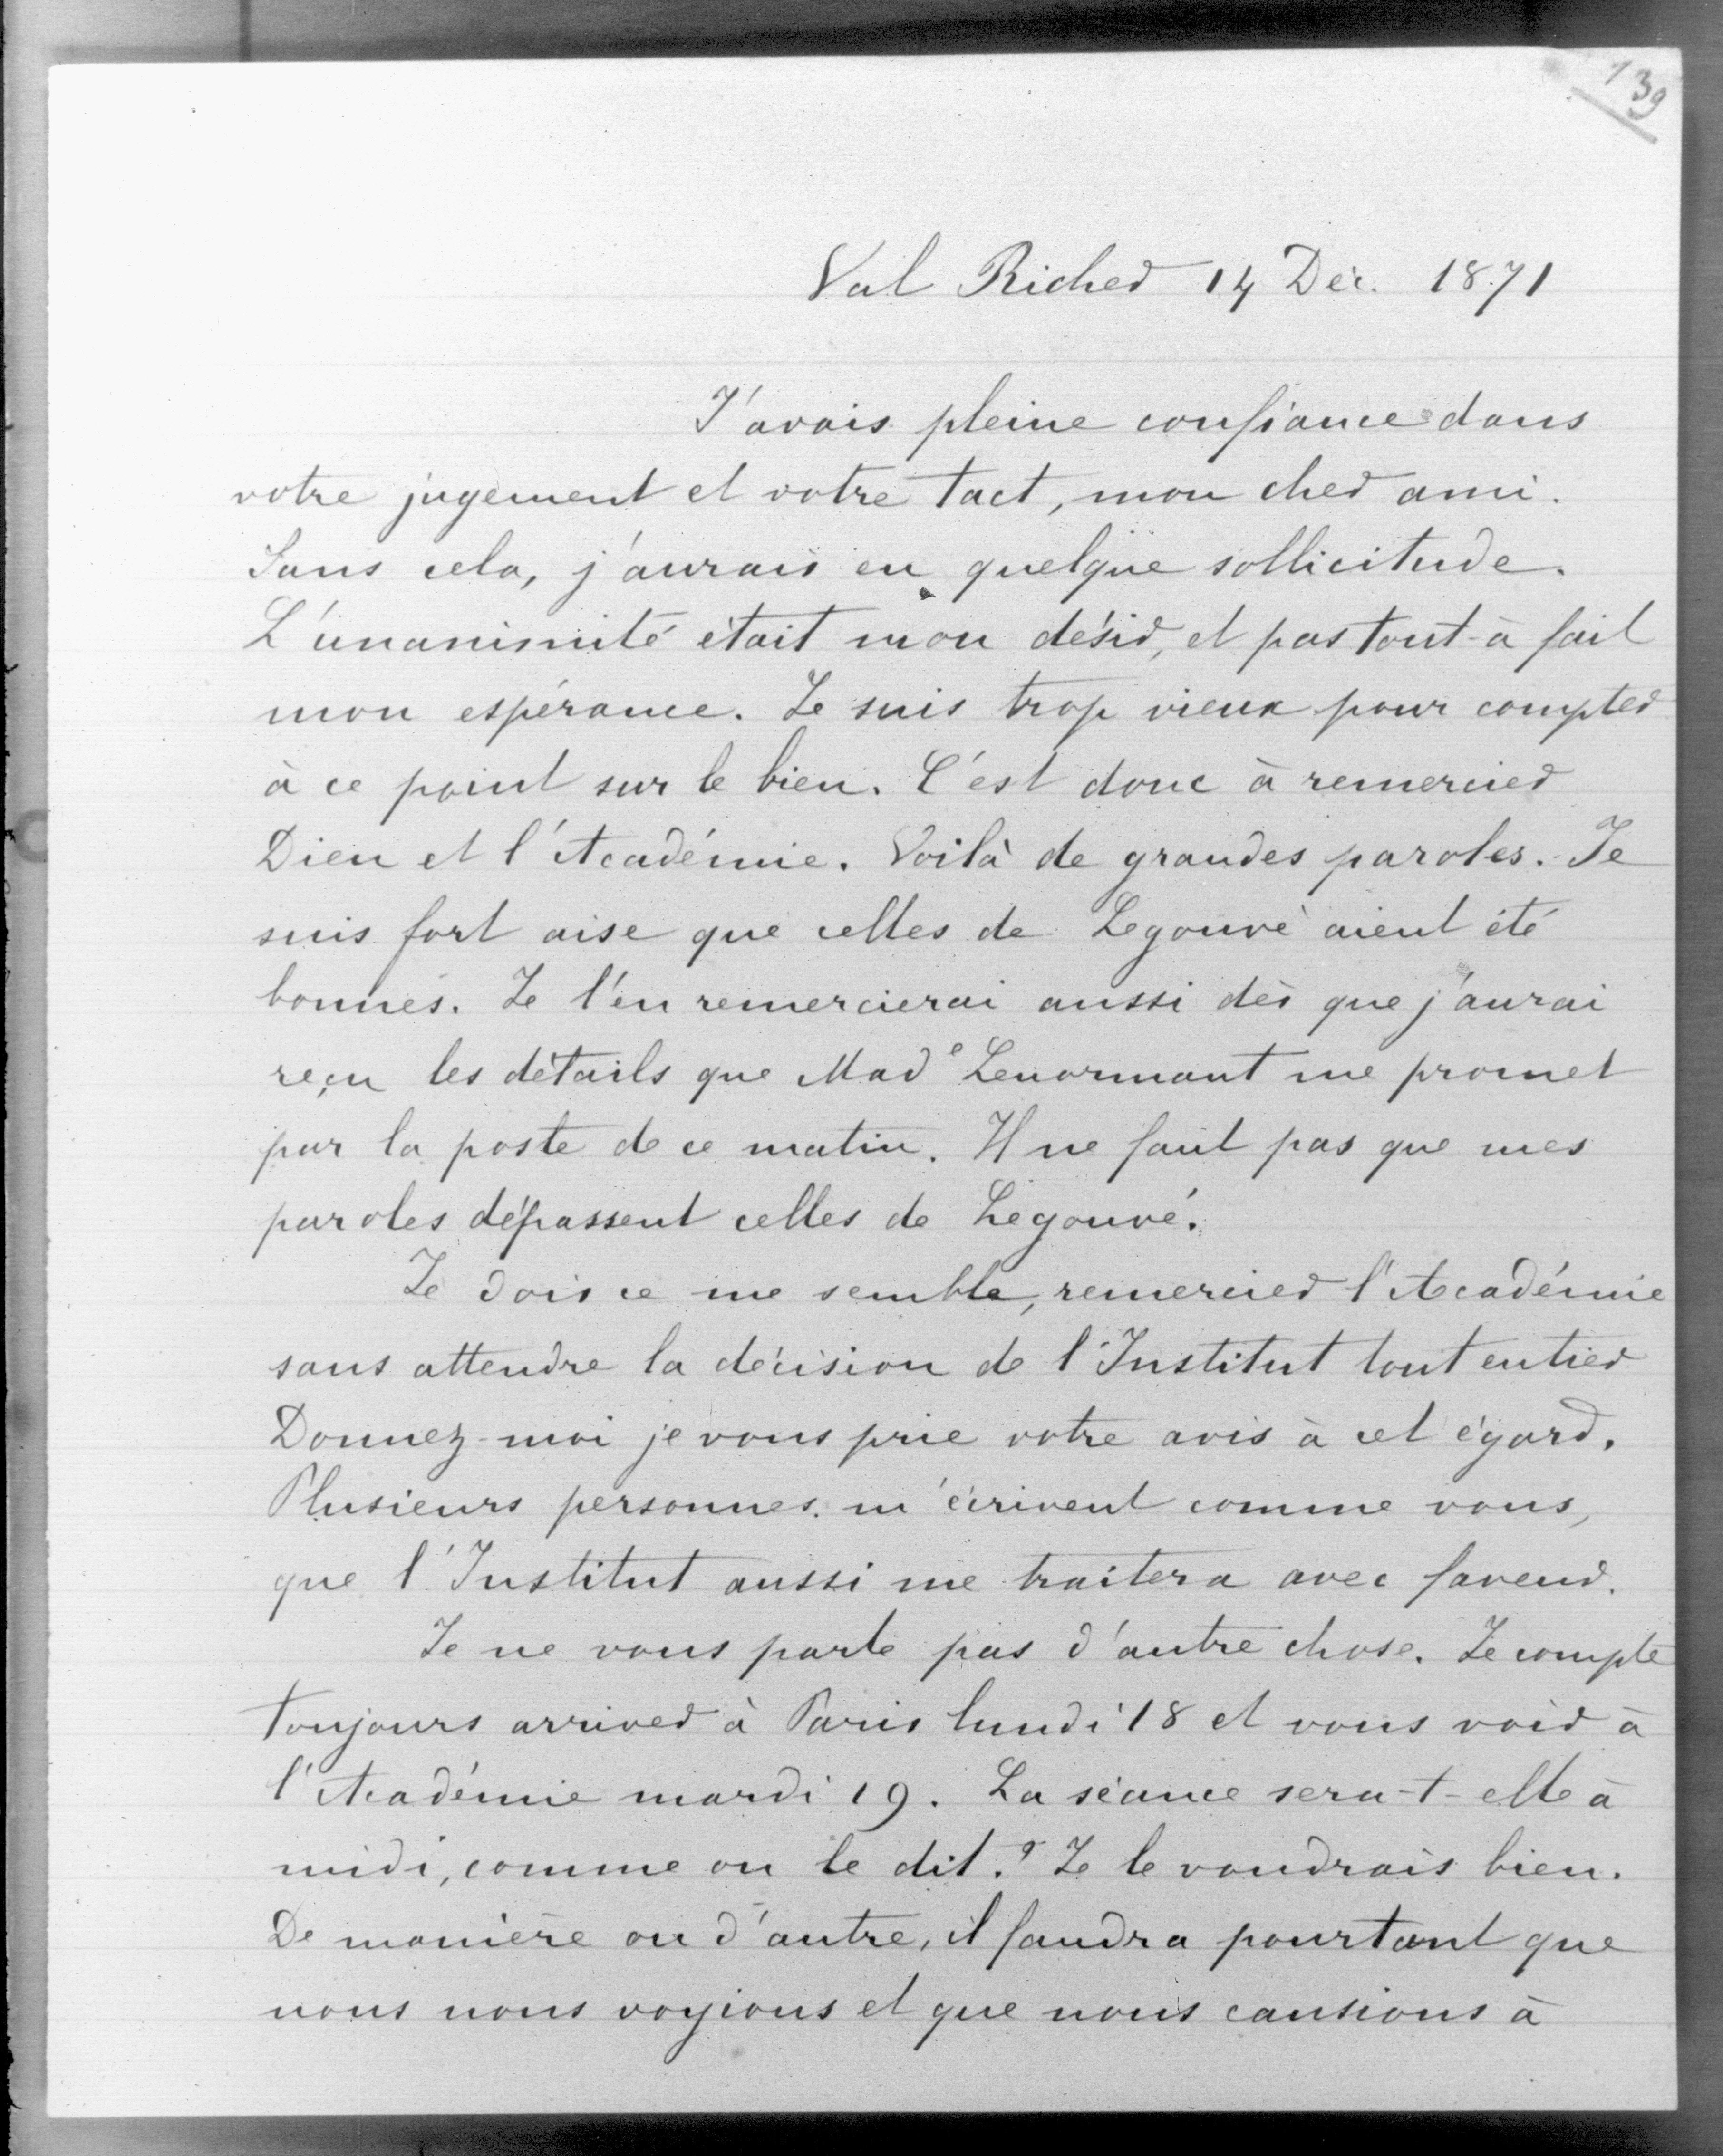 139
Val Richer 14 Déc. 1871
J'avais pleine confiance dans
votre jugement et votre tact, mon cher ami.
Sans cela, j'aurais eu quelque sollicitude.
L'unanimité était mon désir, et pas tout-à fait
mon espérance. Je suis trop vieux pour compter
à ce point sur le bien. C'est donc à remercier
Dieu et l'Académie. Voilà de grandes paroles. Je
suis fort aise que celles de Legouvé aient été
bonnes. Je l'en remercierai aussi dès que j'aurai
reçu les détails que Made Lenormant me promet
par la poste de ce matin. Il ne faut pas que mes
paroles dépassent celles de Legouvé.
Je dois ce me semble, remercier l'Académie
sans attendre la décision de l'Institut tout entier
Donnez-moi je vous prie votre avis à cet égard.
Plusieurs personnes m'écrivent comme vous,
que l'Institut aussi me traitera avec faveur.
Je ne vous parle pas d'autre chose. Je compte
toujours arriver à Paris lundi 18 et vous voir à
l'Académie mardi 19. La séance sera-t-elle à
midi, comme on le dit ? Je le voudrais bien.
De manière ou d'autre, il faudra pourtant que
nous nous voyions et que nous causions à